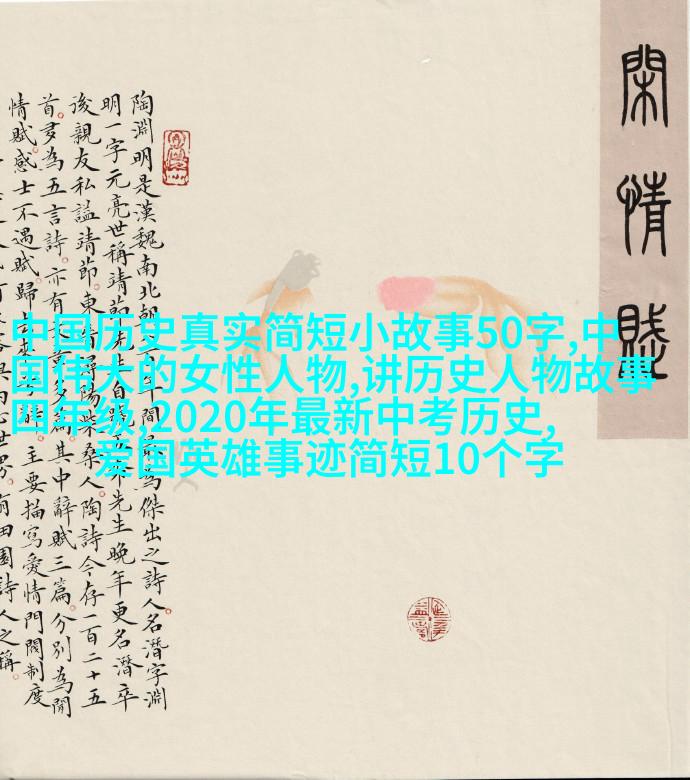 閑情賦
陶淵明是漢魏南北朝年間最為傑出之詩人名潛字淵
明一字元亮世稱靖節先生自先生晚年更名潛卒
後親友私謚靖節東晉潯陽柴桑人陶詩今存一百二十五
首多為五言詩亦有多篇其中辭賦三篇分別為閒
情賦感士不遇賦歸去來辭主要描寫愛情門閥制度
有田園詩人之稱
中国历史真实简短小故事50字,中
国伟大的女性人物,讲历史人物故事
四年级,2020年最新中考历史,
爱国英雄事迹简短10个字